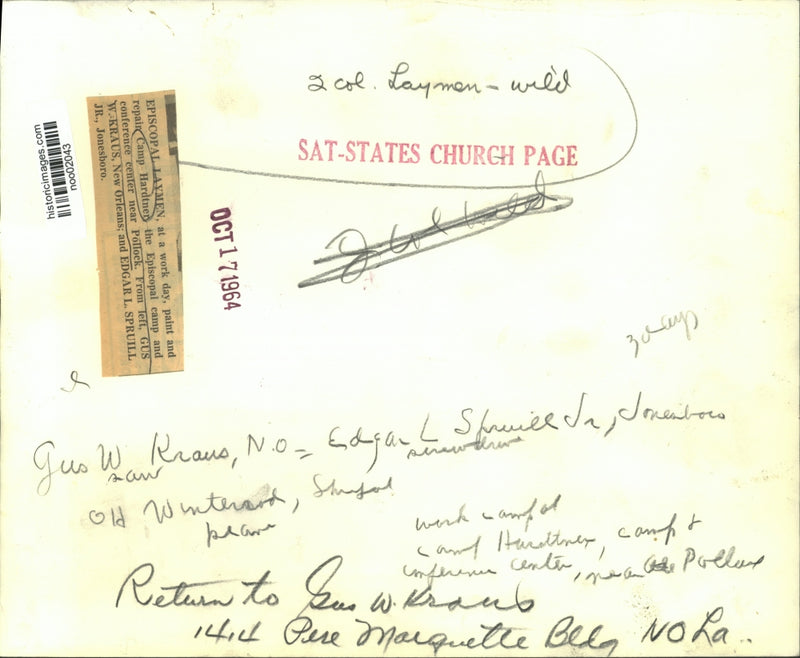 2 col. Laymen - wild
SAT-STATES CHURCH PAGE
historicimages.com
noo02043
EPISCOPAL LAYMEN, at a work day, paint and
repair Camp Hardtner, the Episcopal camp and
conference center near Pollock. From left, GUS
W. KRAUS, New Orleans; and EDGAR L. SPRUILL
JR., Jonesboro.
OCT 17 1964
3 days
Gus W Kraus, N.O - Edgar L Spruill Jr, Jonesboro
saw screwdriver
OH Winterrod,
plane
work camp at
camp Hardtner, camp &
conference center, near Pollock
Return to Gus W. Kraus
1414 Pere Marquette Bldg NO La.